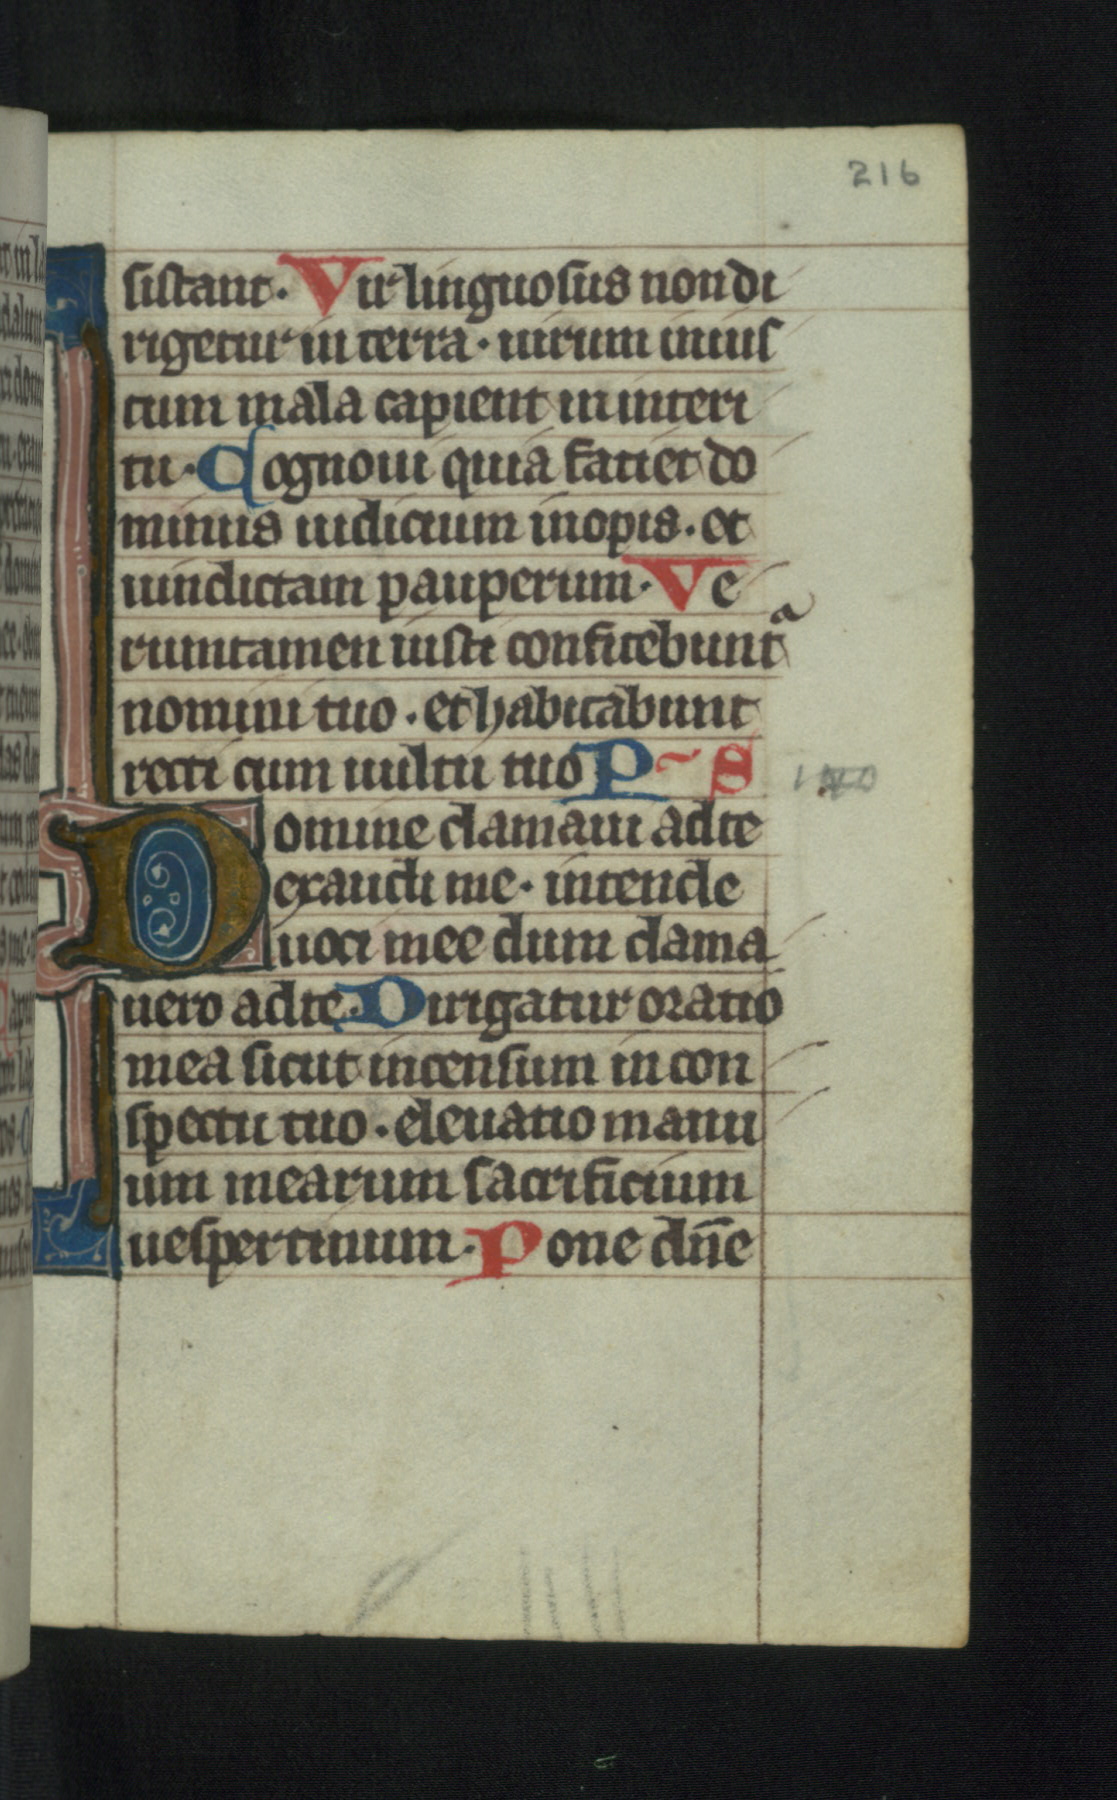 216
sistant. Vir linguosus non di
rigetur in terra. uirum inius
tum mala capient in interi
tu. Cognoui quia faciet do
minus iudicium inopis. et
uindictam pauperum. Ve
rumtamen iusti confitebunt
nomini tuo. et habitabunt
recti cum uultu tuo P~S
Domine clamaui ad te
exaudi me. intende
uoci mee dum clama
uero ad te. Dirigatur oratio
mea sicut incensum in con
spectu tuo. eleuatio manu
um mearum sacrificium
uespertinum. Pone dn̄e